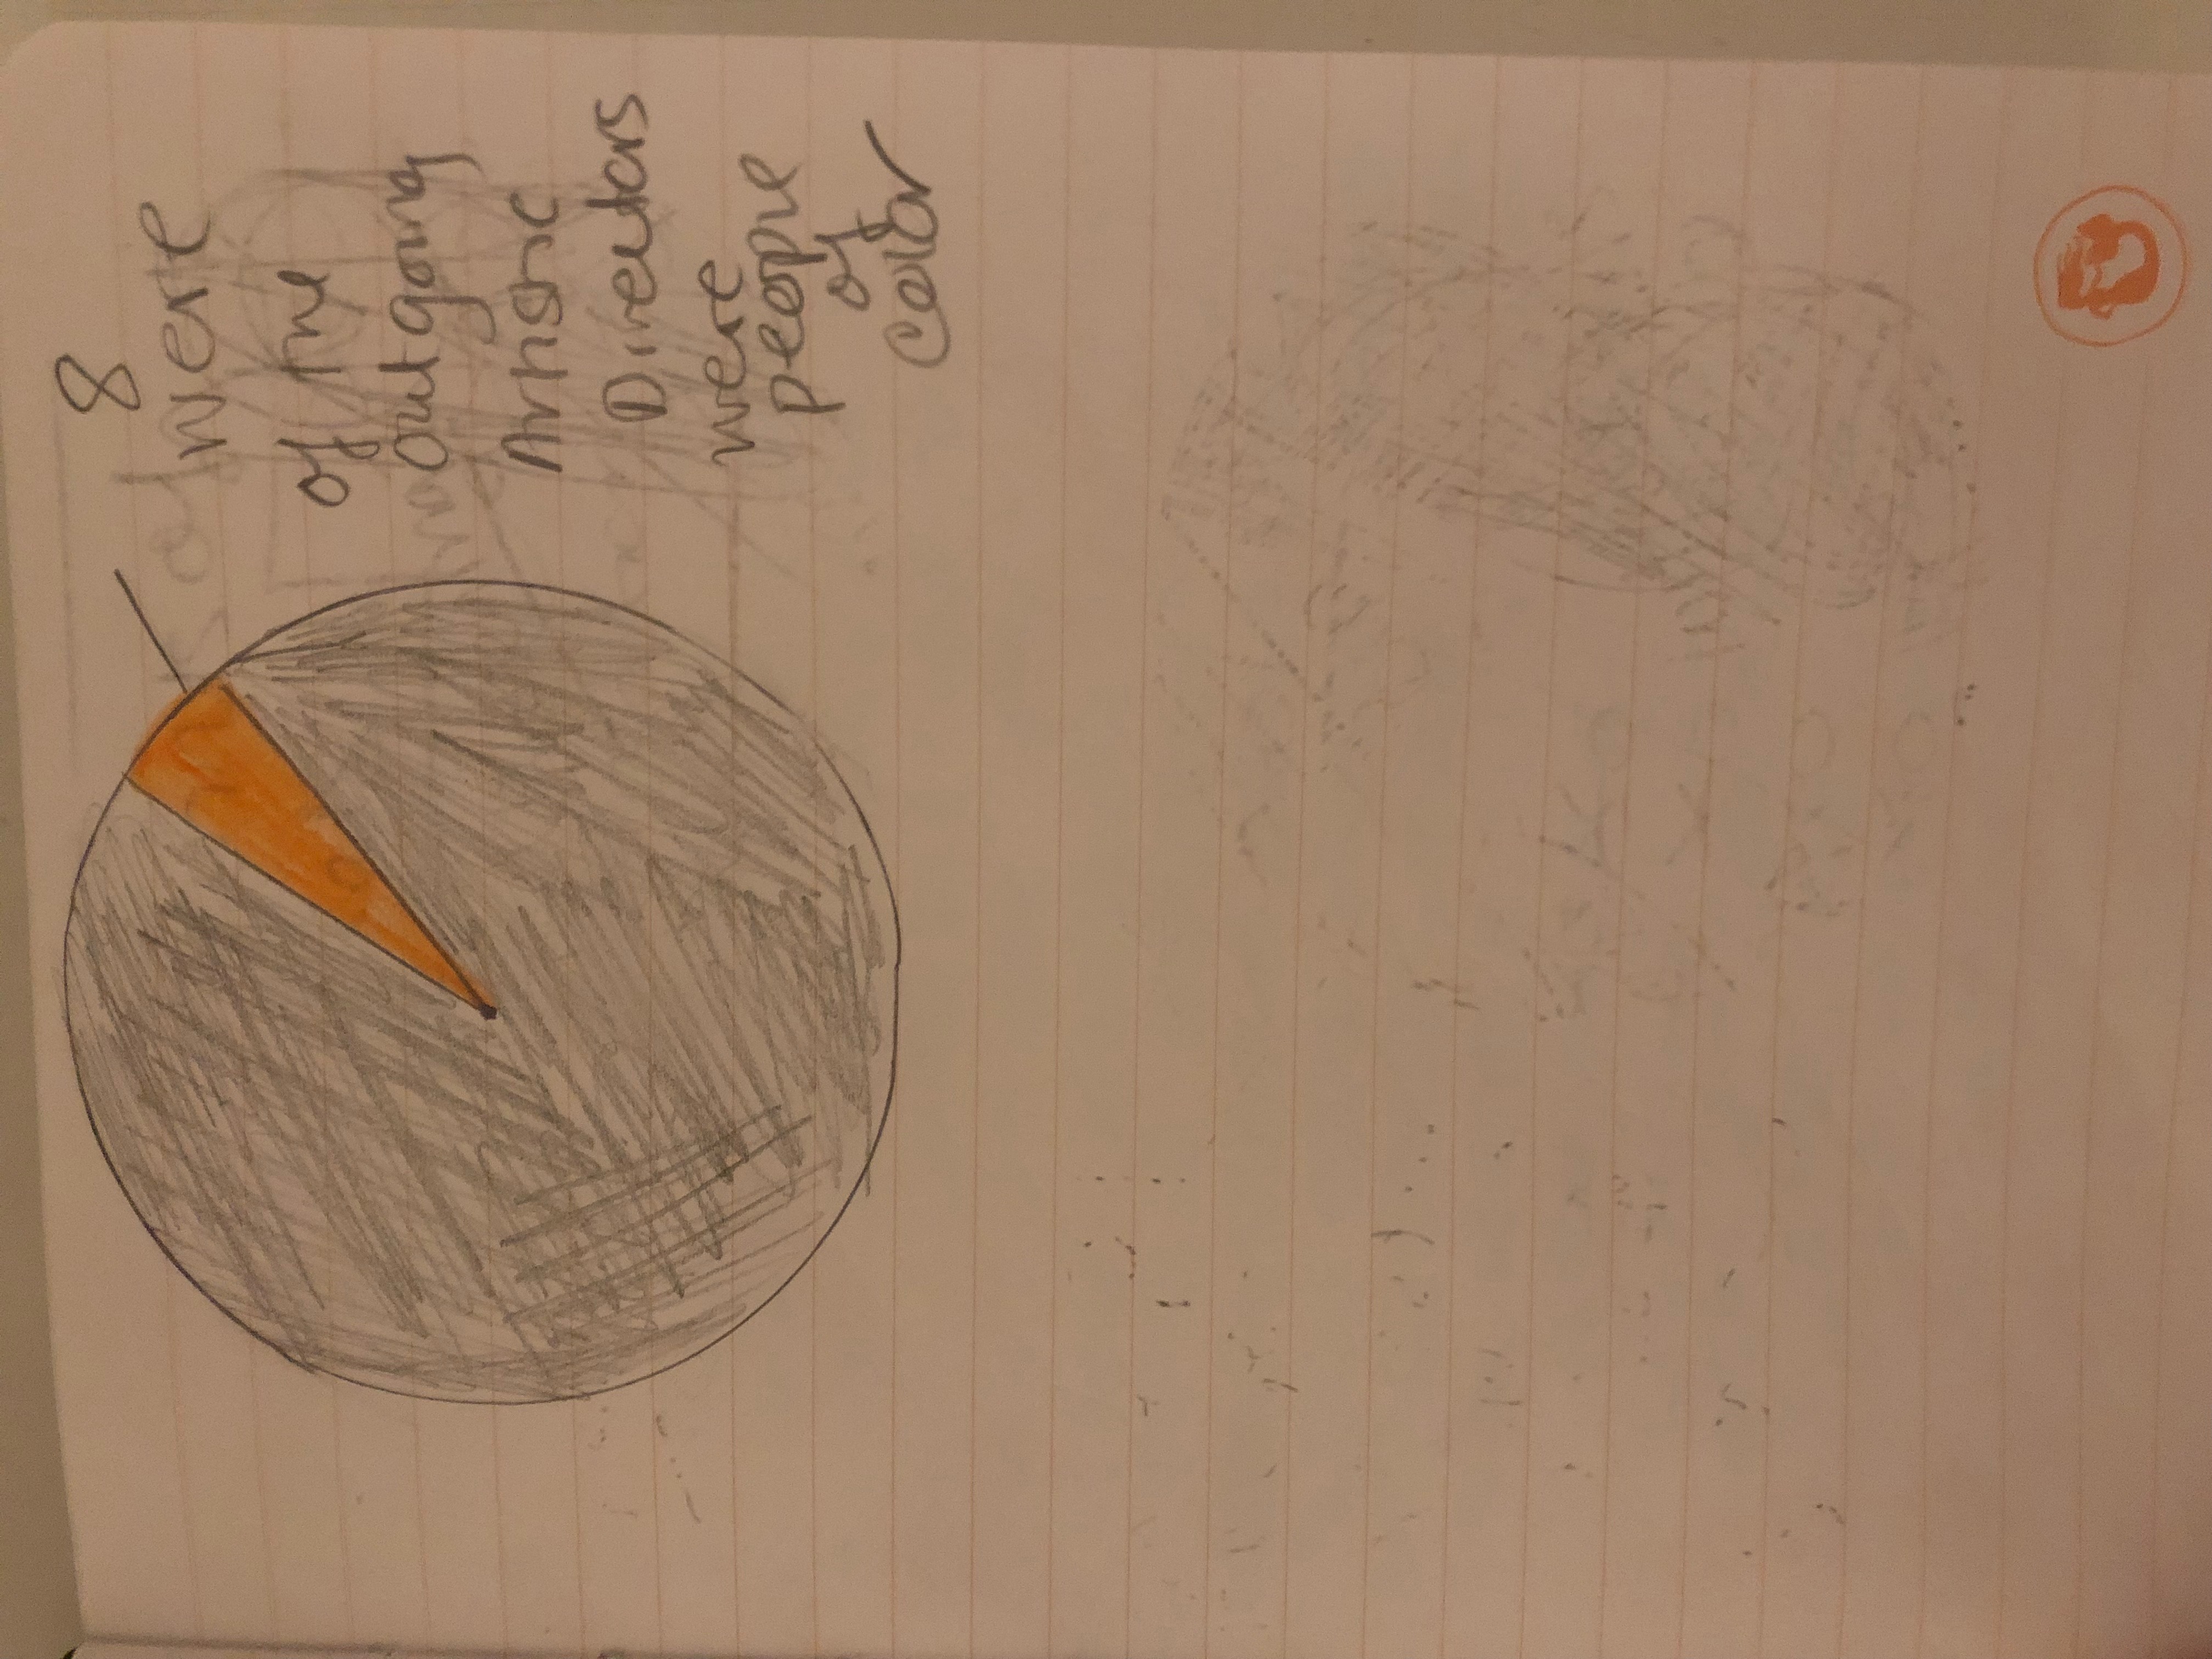 8
were
of the
outgoing
Artistic
Directors
were
people
of
color